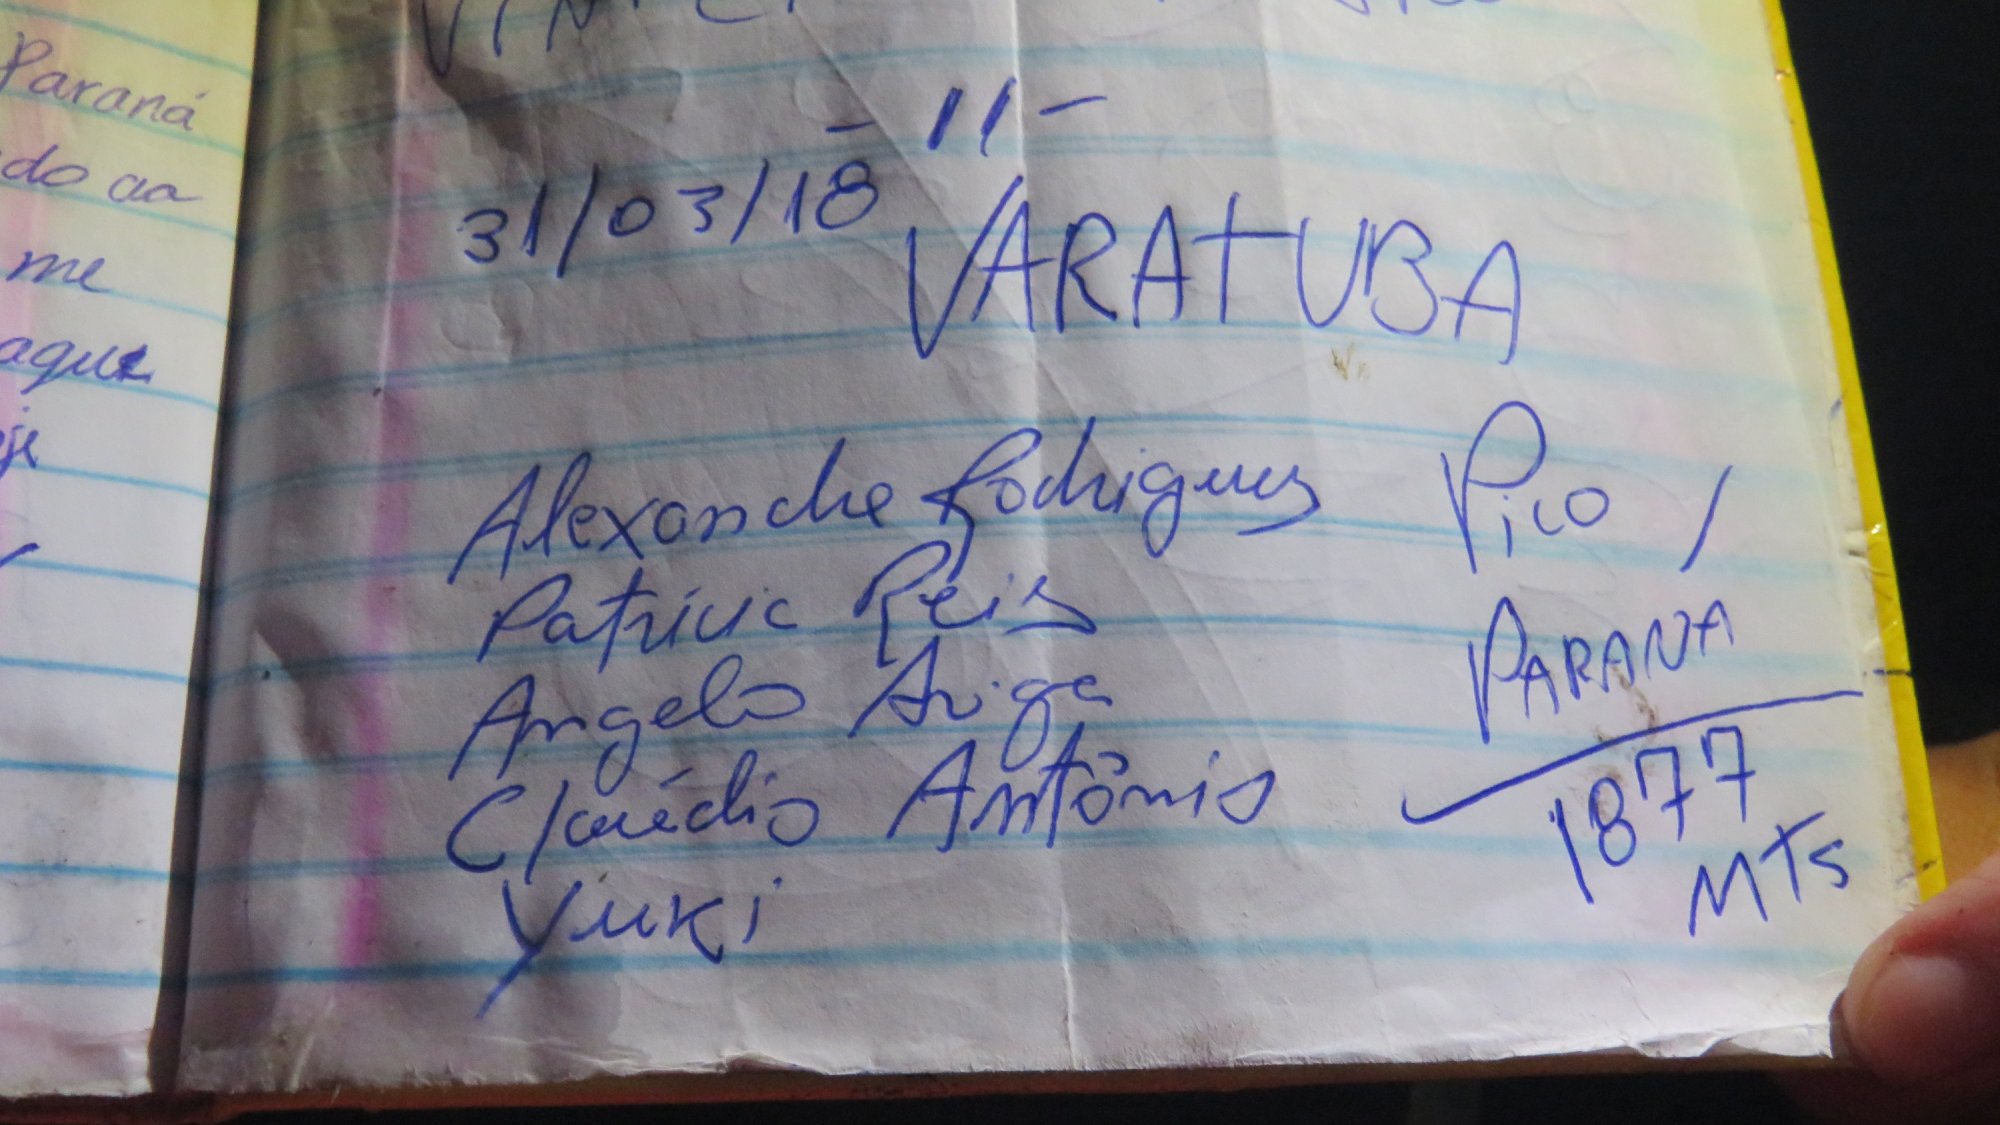 Paraná
do ao
me
- 11 -
31/03/18 VARATUBA
Alexandre Rodrigues
Patrícia Reis
Angelo
Cláudio Antônio
Yuki
Pico /
PARANA
1877
MTS